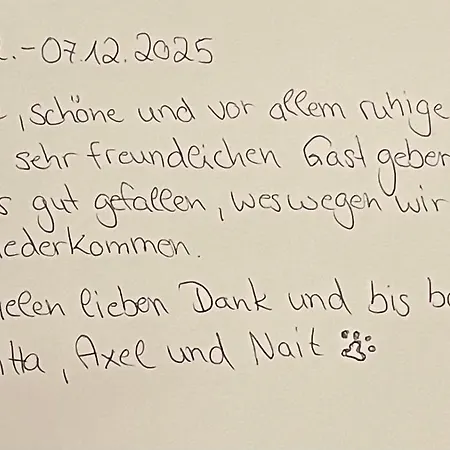 .-07.12.2025
, schöne und vor allem ruhige
sehr freundlichen Gastgeber
s gut gefallen, weswegen wir
iederkommen.
ielen lieben Dank und bis b
itta, Axel und Nait